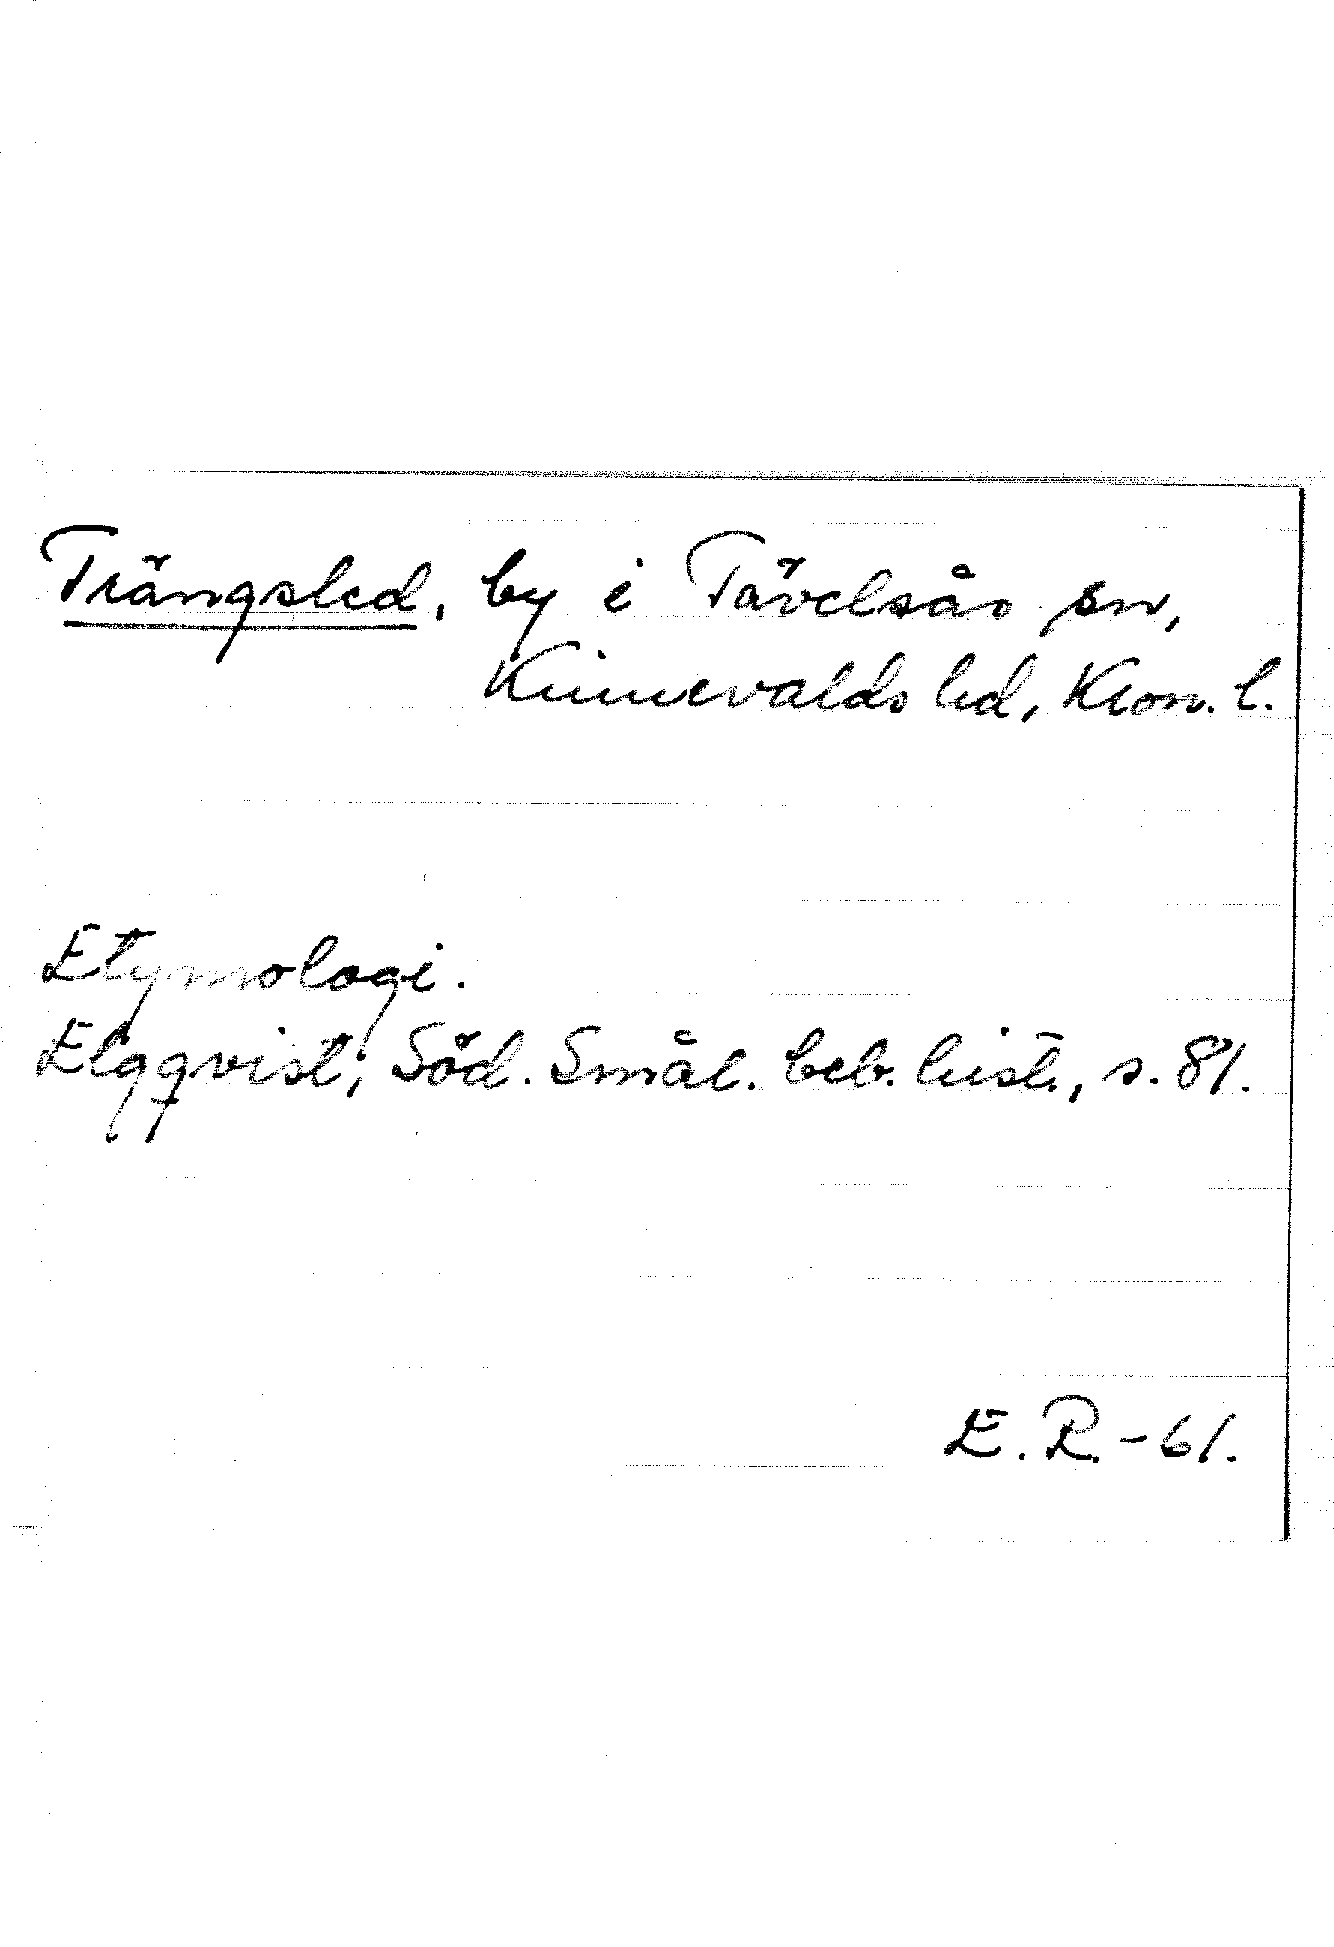 Trängsled, by i Tävelsås sn,
Kinnevalds hd, Kron. l.
Etymologi.
Elgqvist, Söd. Smål. beb. hist., s. 81.
E. R. - 61.